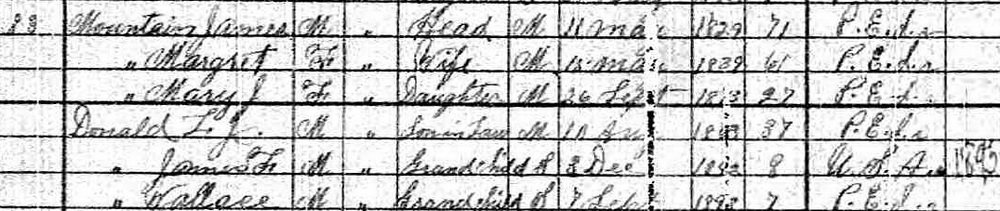 88 Mountain James M " Head M 11 Mar 1829 71 P.E.I.
" Margret F " Wife M 18 1839 61 P.E.I.
" Mary J F " Daughter M 26 Sept 1873 27 P.E.I.
Donald M " Son in Law M 37 P.E.I.
" James F M " Grandchild S 3 Dec 1892 8 U.S.A. 1893
" Wallace M " Grandchild S 7 Sept 1893 7 P.E.I.